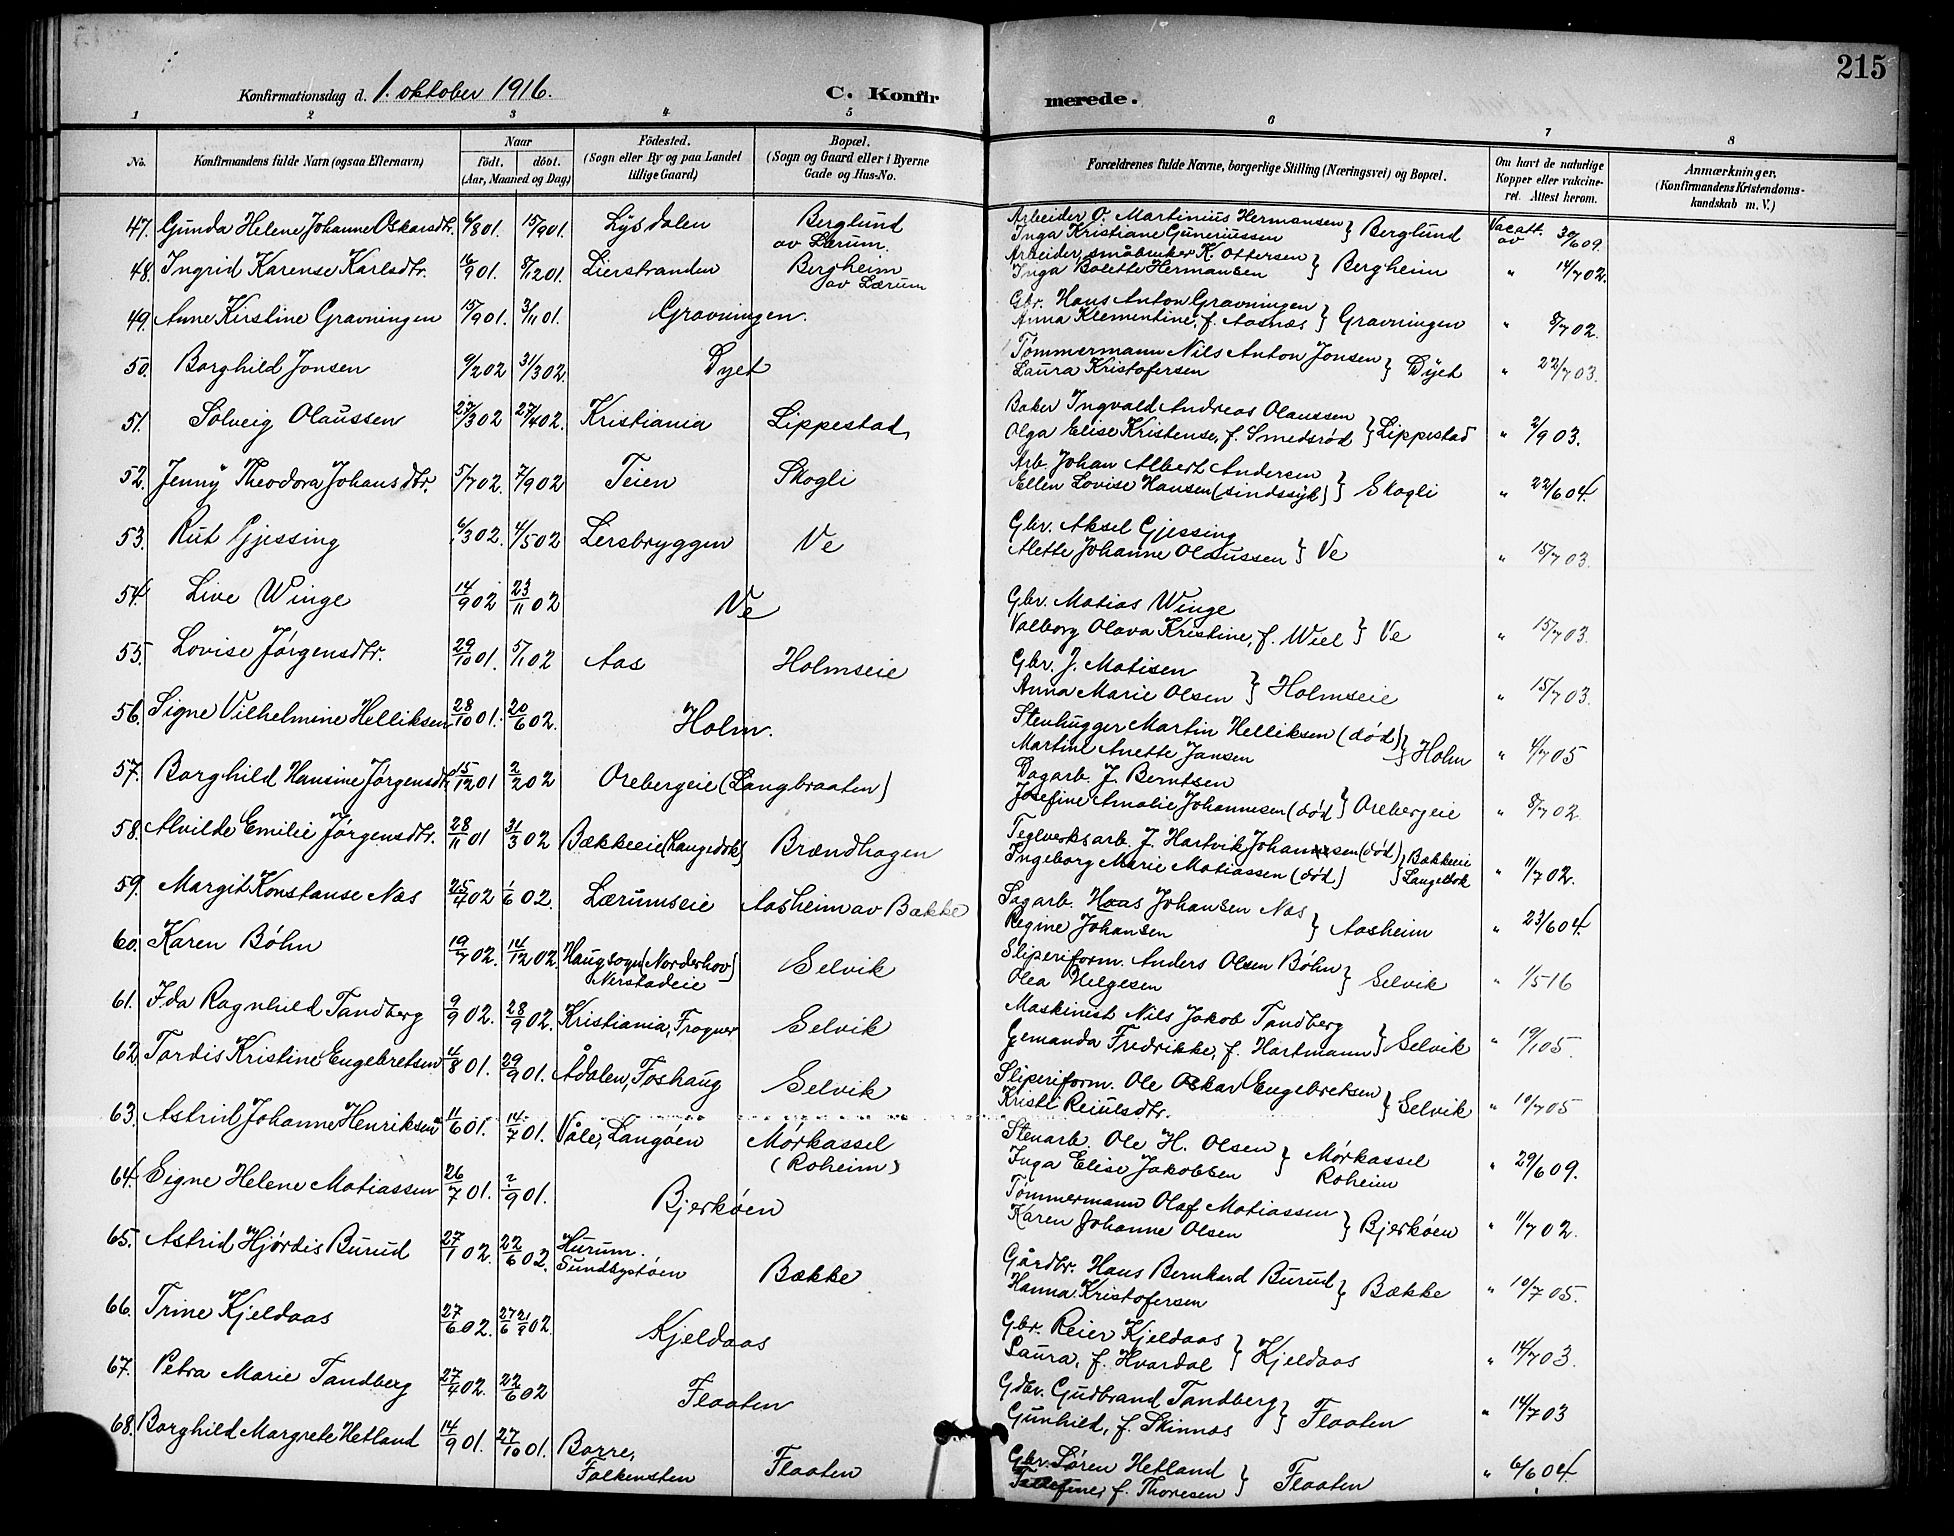 215
Konfirmationsdag d. 1. oktober 1916. C. Konfirmerede.
1 2 3 4 5 6 7 8
No. Konfirmandens fulde Navn (ogsaa Efternavn) Naar födt. döbt. (Aar, Maaned og Dag) Födested. (Sogn eller By og paa Landet tillige Gaard) Bopæl. (Sogn og Gaard eller i Byerne Gade og Hus-No. Forældrenes fulde Navne, borgerlige Stilling (Næringsvei) og Bopæl. Om havt de naturlige Kopper eller vakcineret. Attest herom. Anmærkninger, (Konfirmandens Kristendomskundskab m. V.)
47. Gunda Helene Johanne Oskarsdtr. 6/8 01. 15/9 01. Lysdalen Berglund av Lærum. Arbeider O. Martinius Hermansen Inga Kristiane Guneriussen } Berglund Vac att. av 30/6 09.
48. Ingrid Karense Karlsdtr. 16/9 01. 8/12 01. Lierstranden Bergheim av Lærum Arbeider, småbruker K. Ottersen Inga Bolette Hermansen } Bergheim " 14/7 02.
49. Anne Kirstine Gravningen 15/9 01. 3/11 01. Gravningen. Gbr. Hans Anton Gravningen Anna Klementine, f. Aasnæs } Gravningen " 8/7 02.
50. Borghild Jonsen 9/2 02 31/3 02. Dyet Tømmermann Nils Anton Jonsen Laura Kristofersen } Dyet " 22/7 03.
51. Solveig Olaussen 27/3 02 27/4 02. Kristiania Lippestad, Baker Ingvald Andreas Olaussen Olga Elise Kristense, f. Smedsrød } Lippestad " 2/9 03.
52. Jenny Theodora Johansdtr. 5/7 02. 7/9 02 Teien Skogli Arb. Johan Albert Andersen Ellen Lovise Hansen (sindssyk) } Skogli " 22/6 04.
53. Rut Gjessing 6/3 02. 4/5 02 Lersbryggen Ve Gbr. Aksel Gjessing Alette Johanne Olaussen } Ve " 15/7 03.
54. Live Winge 14/9 02 23/11 02 Ve Gbr. Matias Winge Valborg Olava Kristine, f. Wiel } Ve " 15/7 03.
55. Lovise Jørgensdtr. 29/10 01. 5/1 02 Aas Holmseie Gbr. J. Matisen Anna Marie Olsen } Holmseie " 15/7 03.
56. Signe Vilhelmine Helliksen 28/10 01. 20/6 02. Holm. Stenhugger Martin Helliksen (død) Martine Anette Jansen } Holm " 4/7 05
57. Borghild Hansine Jørgensdtr. 15/12 01 2/2 02 Orebergeie (Langbraaten) Dagarb. J. Berntsen Josefine Amalie Johannesen (død } Orebergeie " 8/7 02.
58. Alvilde Emilie Jørgensdtr. 28/11 01 31/3 02 Bækkeeie (Langedok) Brændhagen Teglverksarb. J. Hartvik Johansen (død) Ingeborg Marie Matiassen (død) } Bækkeeie Langedok " 11/7 02.
59. Margit Konstanse Næs 25/4 02 1/6 02. Lærumseie Aasheim av Bække Sagarb. Hans Johansen Næs Regine Johansen } Aasheim " 23/6 04.
60. Karen Bøhn 19/7 02. 14/12 02. Haugsogn (Norderhov) Nerstadeie Selvik Sliperiform. Anders Olsen Bøhn Olea Helgesen } Selvik " 1/5 16
61. Ida Ragnhild Tandberg 9/9 02. 28/9 02. Kristiania, Frogner Selvik Maskinist Nils Jakob Tandberg Gemanda Fredrikke, f. Hartmann } Selvik " 19/1 05.
62. Tordis Kristine Engebretsen 4/8 01. 29/9 01. Ådalen, Foshaug Selvik Sliperiform. Ole Oskar Engebretsen Kristi Reiulsdtr. } Selvik " 10/7 05
63. Astrid Johanne Henriksen 11/6 01. 14/7 01. Våle, Langøen Mørkassel (Roheim) Stenarb. Ole H. Olsen Inga Elise Jakobsen } Mørkassel Roheim " 29/6 09.
64. Signe Helene Matiassen 26/7 01. ?/9 01. Bjerkøen Tømmermann Olaf Matiassen Karen Johanne Olsen } Bjerkøen " 11/7 02.
65. Astrid Hjørdis Burud 27/1 02. 22/6 02. Hurum. Sundbystøen Bække Gårdbr. Hans Bernhard Burud Hanna Kristofersen } Bække " 10/7 05.
66. Trine Kjeldaas 27/6 02. 27/6 21/9 02. Kjeldaas Gbr. Reier Kjeldaas Laura, f. Hvardal } Kjeldaas " 14/7 03.
67. Petra Marie Tandberg 27/4 02. 22/6 02 Flaaten Gdbr. Gudbrand Tandberg Gunhild, f. Skinnæs } Flaaten " 14/7 03
68. Borghild Margrete Hetland 14/9 01. 27/10 01. Borre, Falkensten Flaaten Gbr. Søren Hetland f. Thoresen } Flaaten " 6/6 04.